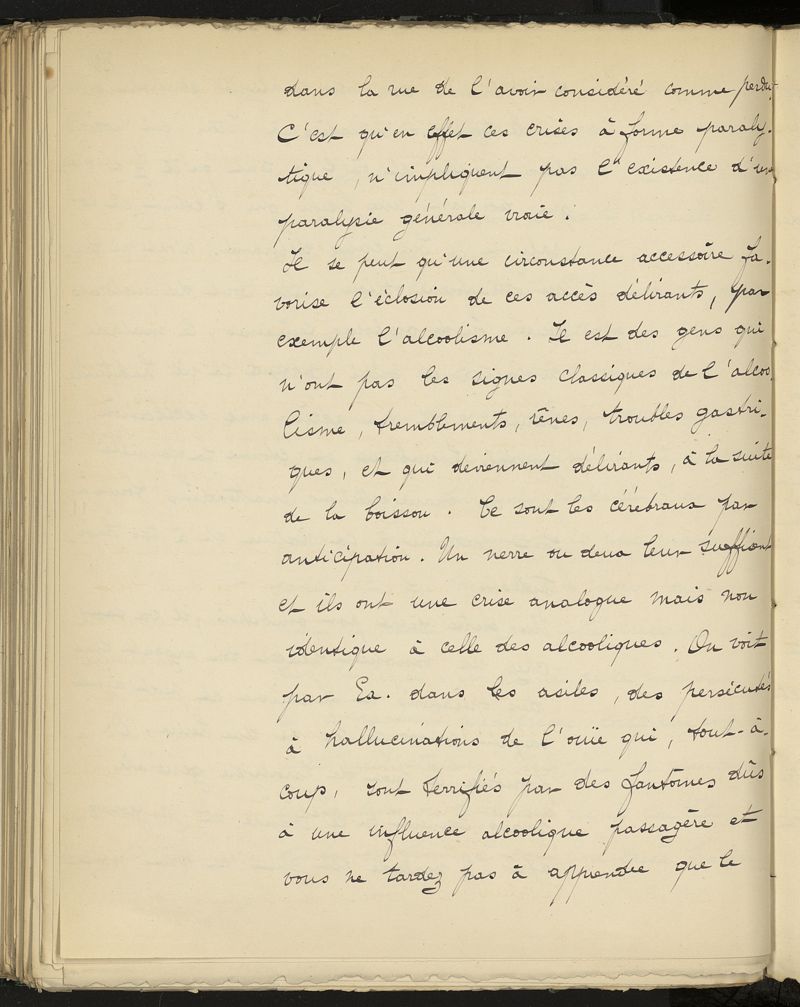 dans la rue de l'avoir considéré comme perdu.
C'est qu'en effet ces crises à forme paraly-
tique, n'impliquent pas l'existence d'une
paralysie générale vraie.
Il se peut qu'une circonstance accessoire fa-
vorise l'éclosion de ces accès délirants, par
exemple l'alcoolisme. Il est des gens qui
n'ont pas les signes classiques de l'alcoo
lisme, tremblements, rêves, troubles gastri-
ques, et qui deviennent délirants, à la suite
de la boisson. Ce sont les cérébraux par
anticipation. Un verre ou deux leur suffisent
et ils ont une crise analogue mais non
identique à celle des alcooliques. On voit
par Ex. dans les asiles, des persécutés
à hallucinations de l'ouïe qui, tout-à-
coup, sont terrifiés par des fantômes dûs
à une influence alcoolique passagère et
vous ne tardez pas à apprendre que le